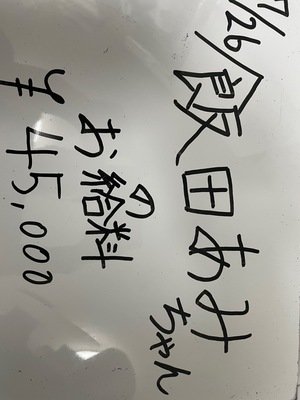 7/26
飯田あみちゃん
の
お給料
¥45,000